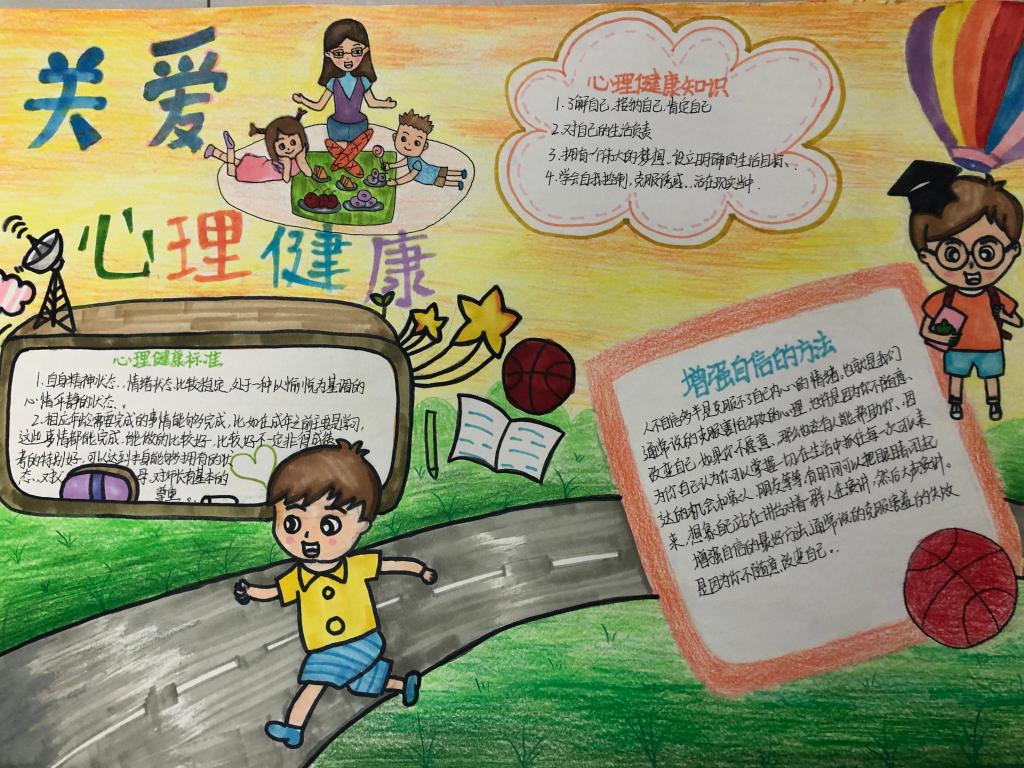 关爱
心理健康
心理健康知识
1.了解自己、接纳自己、肯定自己
2.对自己的生活负责
3.拥有一个伟大的梦想、设立明确的生活目标、
4.学会自我控制，克服诱惑、活在现实当中.
心理健康标准
1.自身精神状态、情绪状态比较稳定，处于一种以愉悦为基调的
心情平静的状态、
2.相应年龄需要完成的事情能够完成，比如在成年之前主要是学习，
这些事情都能完成，能做的比较好，比较好不一定非得成绩
考的特别好，可以达到自身能够拥有的状
态、对
导、对于所有基本的
尊重、。
增强自信的方法
人不自信多半是克服不了自己内心的情绪，也就是我们
通常说的克服害怕失败的心理，也许是因为你不随意、
改变自己，如果说不愿意，那么也没有人能帮助你、因
为你自己认为你可以掌握一切，在生活中抓住每一次可以表
达的机会和家人、朋友等等，有时间可以把眼睛闭起
来，想象自己站在讲台对着一群人在演讲，然后大声演讲。
增强自信的最好方法、通常说的克服害羞的失败
是因为你不随意改变自己、.